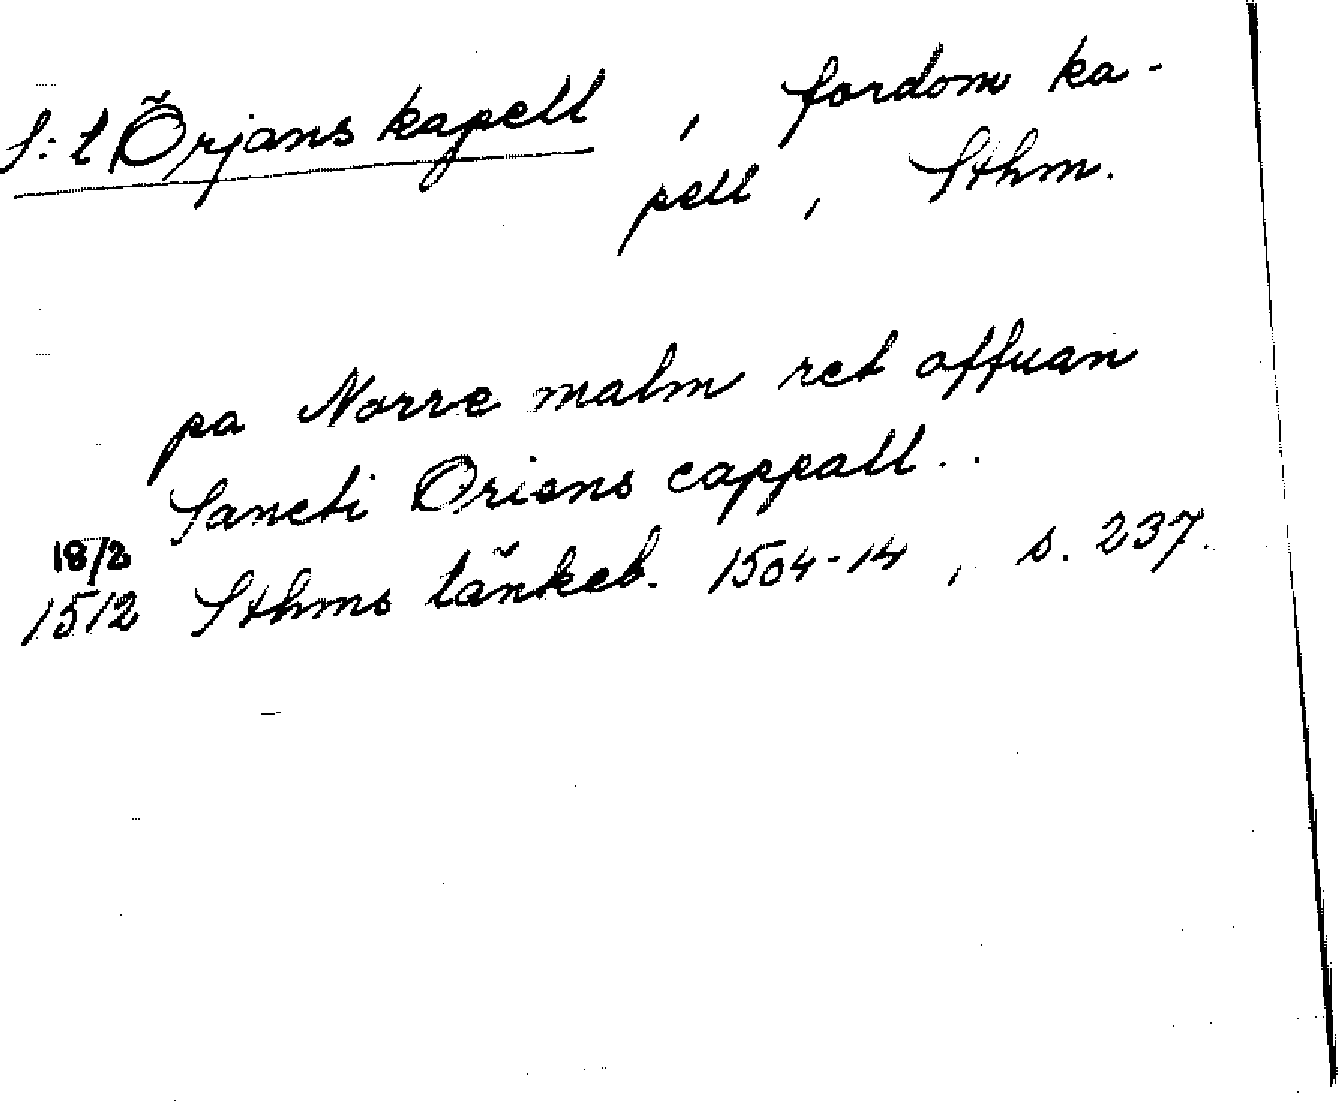 S:t Örjans kapell, fordom ka-
pell, Sthm.
pa Norre malm ret offuan
Sancti Oriens cappall..
18/2
1512 Sthms tänkeb. 1504-14, s. 237.